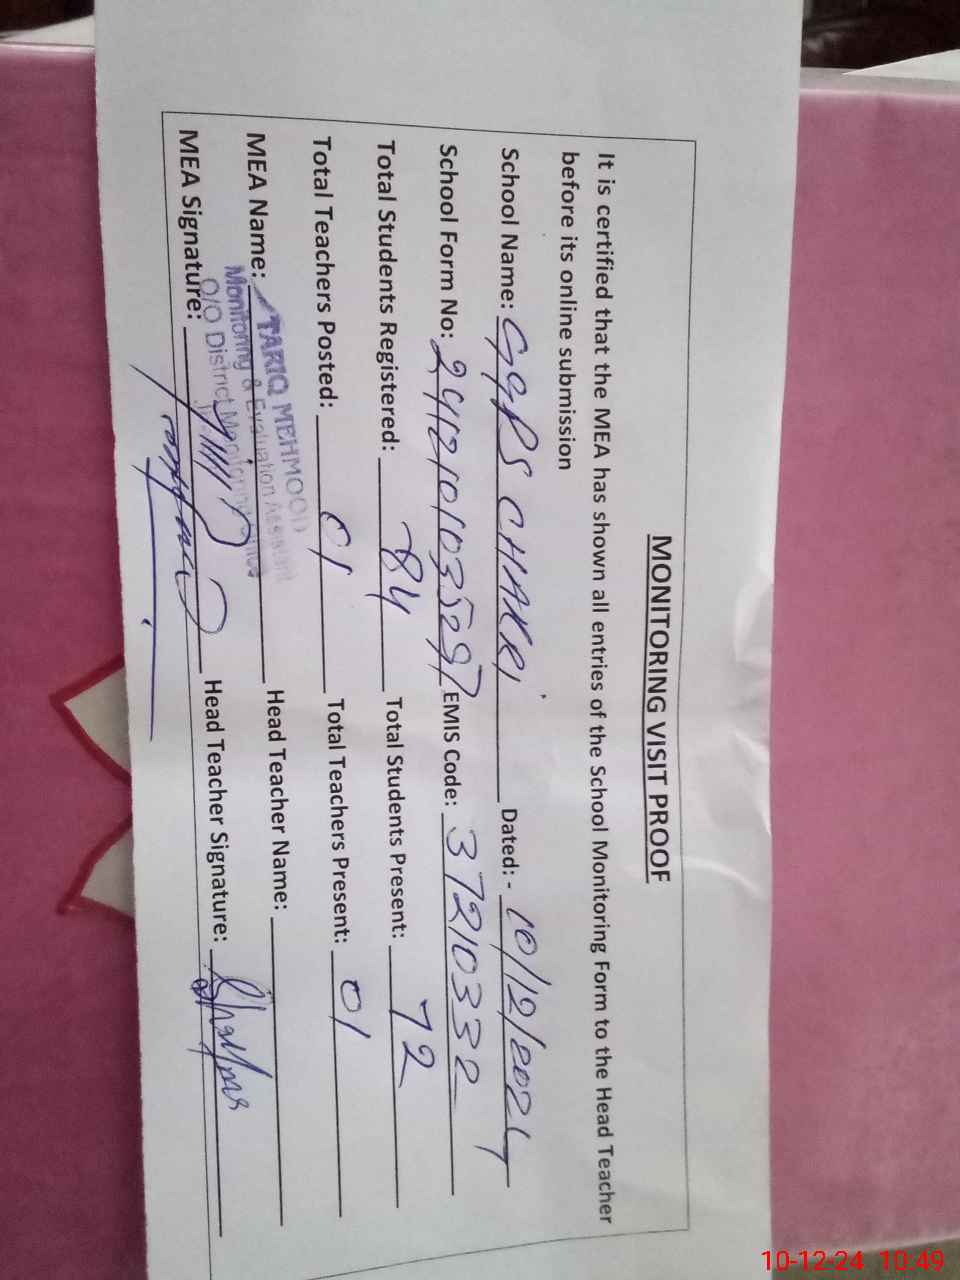 MONITORING VISIT PROOF
It is certified that the MEA has shown all entries of the School Monitoring Form to the Head Teacher
before its online submission
School Name: GGPS CHAKRI Dated: - 10/12/2024
School Form No: EMIS Code: 37210332
Total Students Registered: 84 Total Students Present: 72
Total Teachers Posted: 01 Total Teachers Present: 01
MEA Name: TARIQ MEHMOOD Head Teacher Name:
Monitoring & Evaluation Assistant
O/O District Monitoring Office
MEA Signature: Head Teacher Signature:
10-12-24 10:49